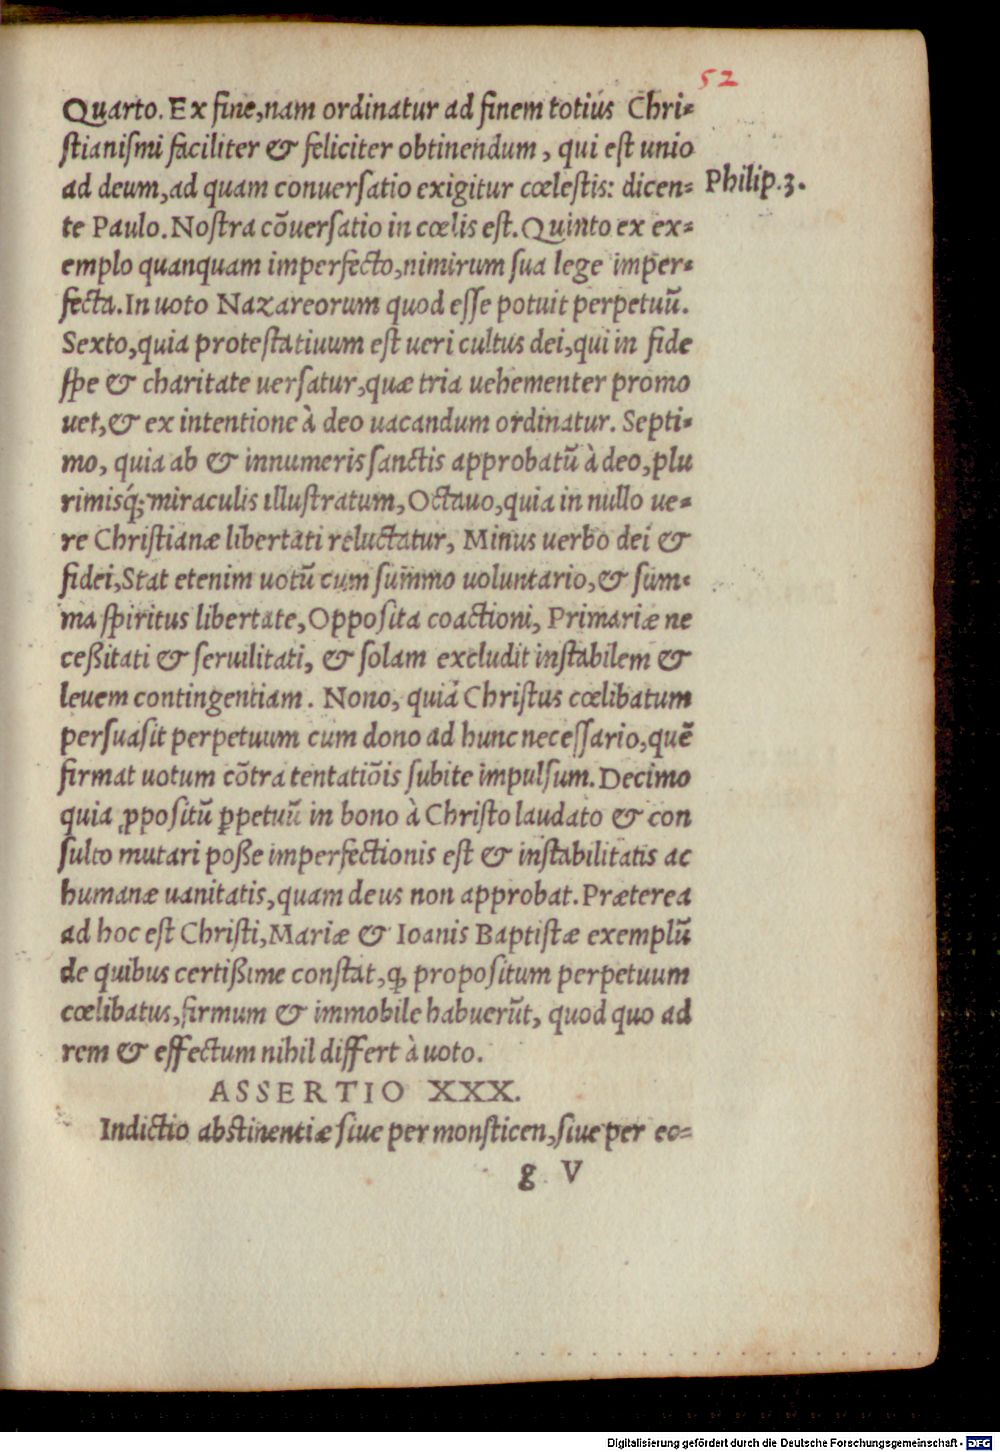 52
Quarto. Ex fine, nam ordinatur ad finem totius Chri-
ſtianiſmi faciliter & feliciter obtinendum, qui eſt unio
ad deum, ad quam conuerſatio exigitur cœleſtis: dicen-
Philip. 3.
te Paulo. Noſtra cõuerſatio in cœlis eſt. Quinto ex ex-
emplo quanquam imperfecto, nimirum ſua lege imper-
fecta. In uoto Nazareorum quod eſſe potuit perpetuũ.
Sexto, quia proteſtatiuum eſt ueri cultus dei, qui in fide
ſpe & charitate uerſatur, quæ tria uehementer promo
uet, & ex intentione à deo uacandum ordinatur. Septi-
mo, quia ab & innumeris ſanctis approbatũ à deo, plu
rimisq́; miraculis illuſtratum, Octauo, quia in nullo ue-
re Chriſtianæ libertati reluctatur, Minus uerbo dei &
fidei, Stat etenim uotũ cum ſummo uoluntario, & ſum-
ma ſpiritus libertate, Oppoſita coactioni, Primariæ ne
ceßitati & ſeruilitati, & ſolam excludit inſtabilem &
leuem contingentiam. Nono, quia Chriſtus cœlibatum
perſuaſit perpetuum cum dono ad hunc neceſſario, quẽ
firmat uotum cõtra tentatiõis ſubite impulſum. Decimo
quia ꝓpoſitũ ꝑpetuũ in bono à Chriſto laudato & con
ſulto mutari poße imperfectionis eſt & inſtabilitatis ac
humanæ uanitatis, quam deus non approbat. Præterea
ad hoc eſt Chriſti, Mariæ & Ioanis Baptiſtæ exemplũ
de quibus certißime conſtat, ꝙ propoſitum perpetuum
cœlibatus, firmum & immobile habuerũt, quod quo ad
rem & effectum nihil differt à uoto.
ASSERTIO XXX.
Indictio abſtinentiæ ſiue per monſticen, ſiue per ec-
g V
Digitalisierung gefördert durch die Deutsche Forschungsgemeinschaft - DFG